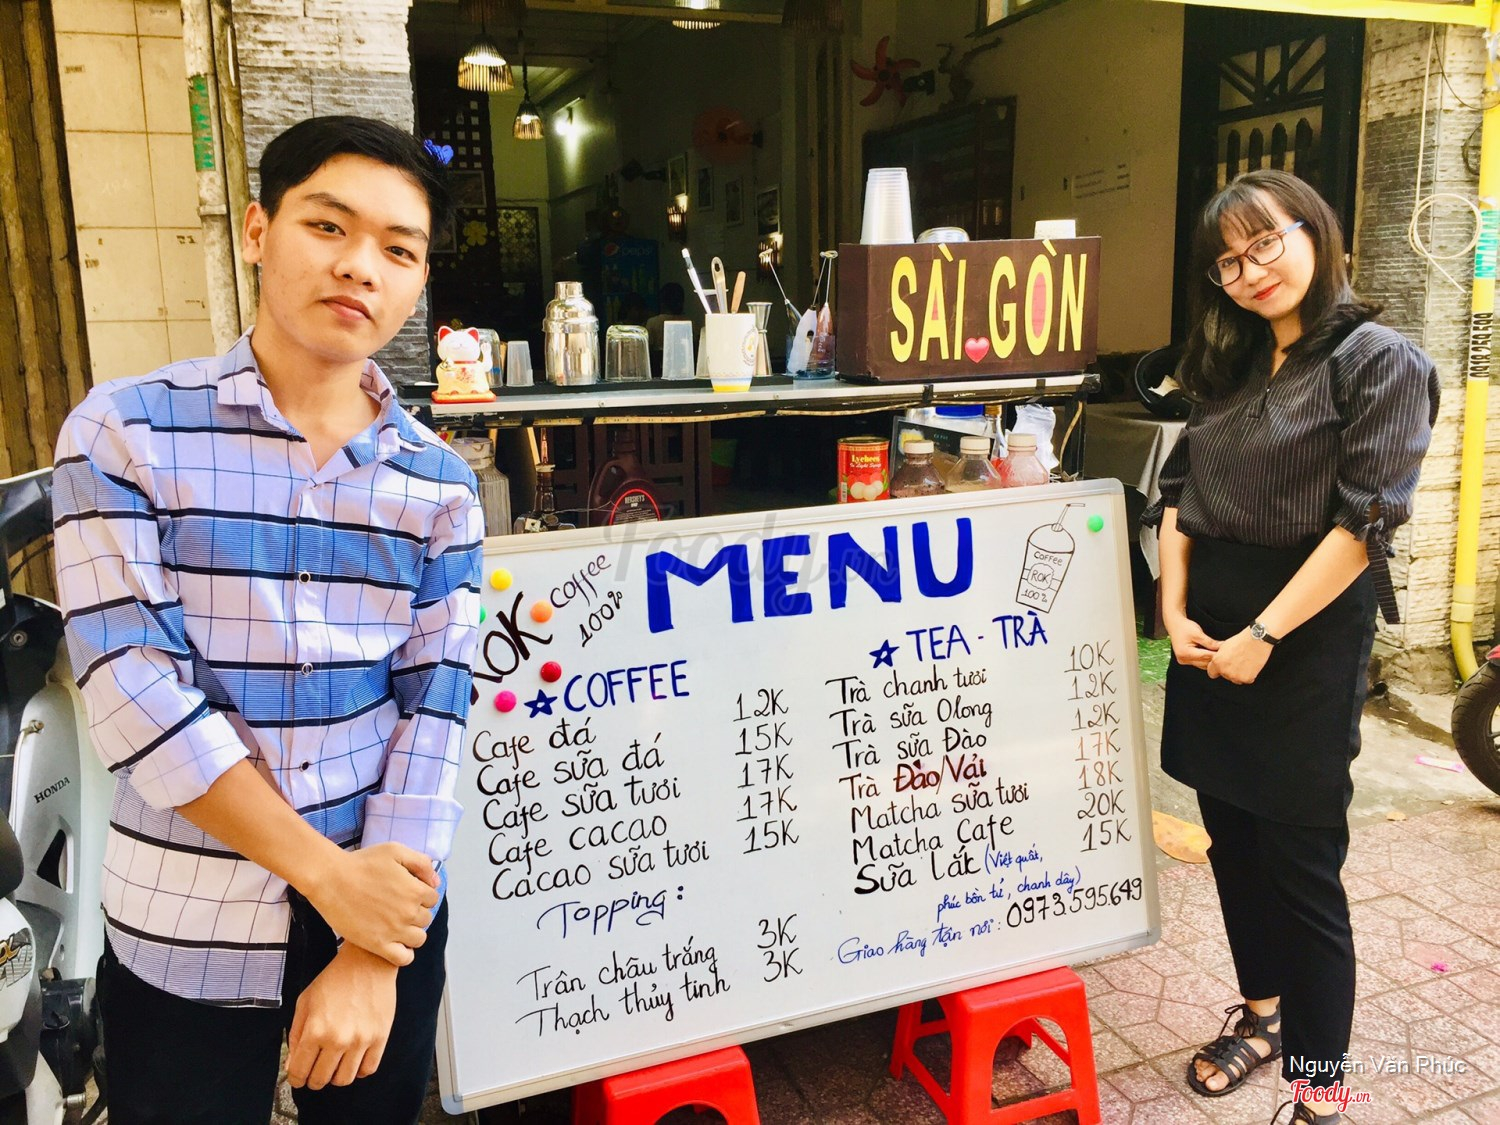 SÀI GÒN
Lychees
HERSHEY'S
HONDA
0949 250 509
Foody.vn
MENU
ROK
coffee
100%
COFFEE
ROK
100%
COFFEE
Cafe đá 12K
Cafe sữa đá 15K
Cafe sữa tươi 17K
Cafe cacao 17K
Cacao sữa tươi 15K
Topping:
Trân châu trắng 3K
Thạch thủy tinh 3K
TEA - TRÀ
Trà chanh tươi 10K
Trà sữa Olong 12K
Trà sữa Đào 12K
Trà Đào/Vải 17K
Matcha sữa tươi 18K
Matcha Cafe 20K
Sữa lắc (Việt quất, 15K
phúc bồn tử, chanh dây)
Giao hàng tận nơi: 0973.595.649
Nguyễn Văn Phúc
Foody.vn